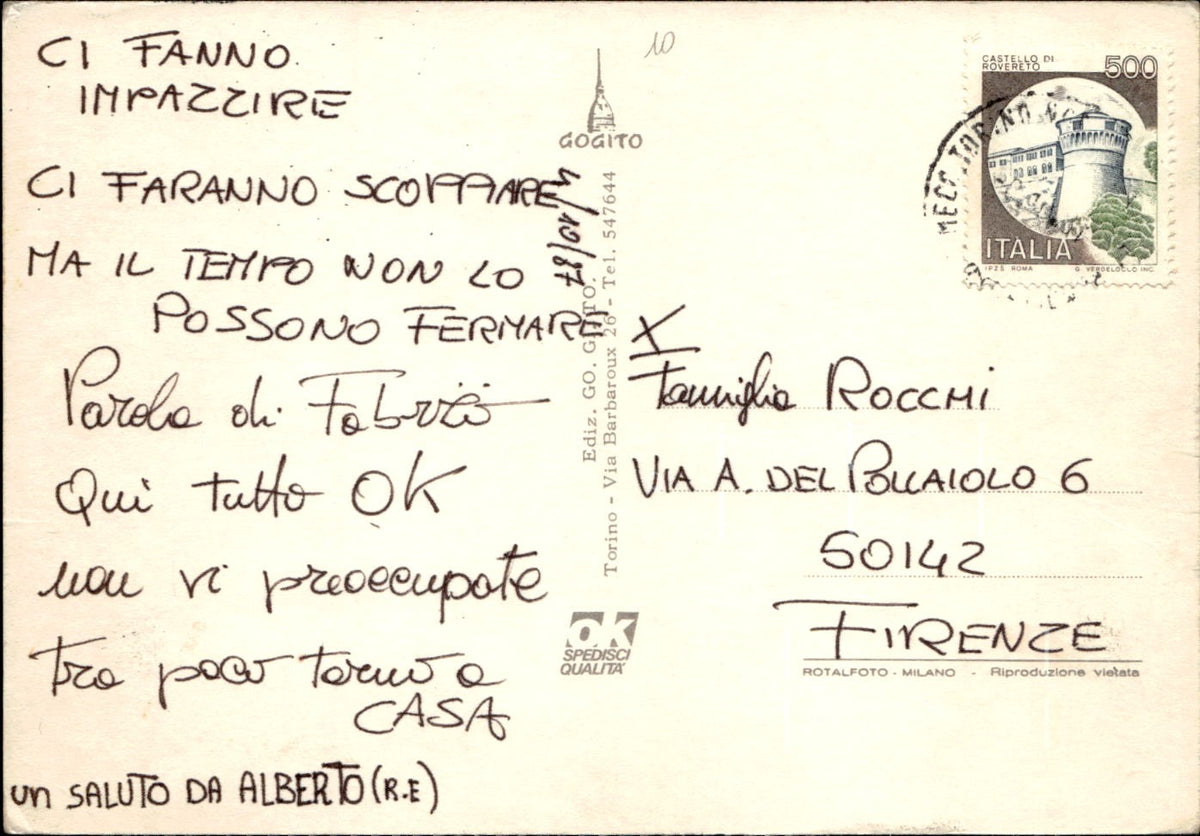 CI FANNO
IMPAZZIRE
CI FARANNO SCOPPIARE
MA IL TEMPO NON LO
POSSONO FERMARE
Parola di Fabrizio
Qui tutto OK
non vi preoccupate
tra poco torno a
CASA
un SALUTO DA ALBERTO (R.E)
4/10/87
10
GOGITO
Ediz. GO. GI. TO.
Torino - Via Barbaroux 26 - Tel. 547644
OK
SPEDISCI
QUALITA'
CASTELLO DI
ROVERETO
500
ITALIA
IPZS ROMA
G. VERDELOCLO INC.
MECC TORINO
X
Famiglia ROCCHI
VIA A. DEL POLLAIOLO 6
50142
FIRENZE
ROTALFOTO - MILANO - Riproduzione vietata